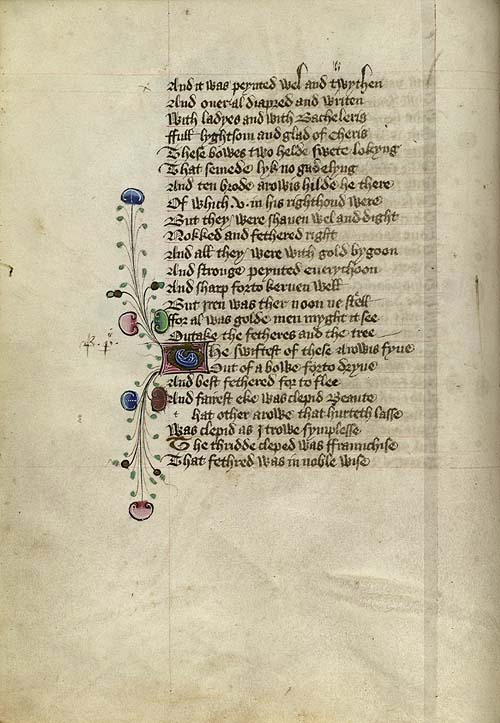 And it was peynted wel and twythen
And oueral diapred and writen
With ladyes and with Bacheleris
ffull lyghtsom and glad of cheris
These bowes two helde swete lokyng
That semede lyk no gadelyng
And ten brode arowis hilde he there
Of which .v. in his righthond were
But they were shauen wel and dight
Nokked and fethered right
And all they were with gold bygoon
And stronge peynted euerychoon
And sharp forto keruen well
But Iren was ther noon ne stell
ffor al was golde men myght it see
Outake the fetheres and the tree
The swiftest of these arowis fyue
Out of a bowe forto dryue
And best fethered for to flee
And fairest eke was clepid Beaute
t hat other arowe that hurteth lasse
Was clepid as I trowe symplesse
The thridde cleped was ffraunchise
That fethred was in noble wise